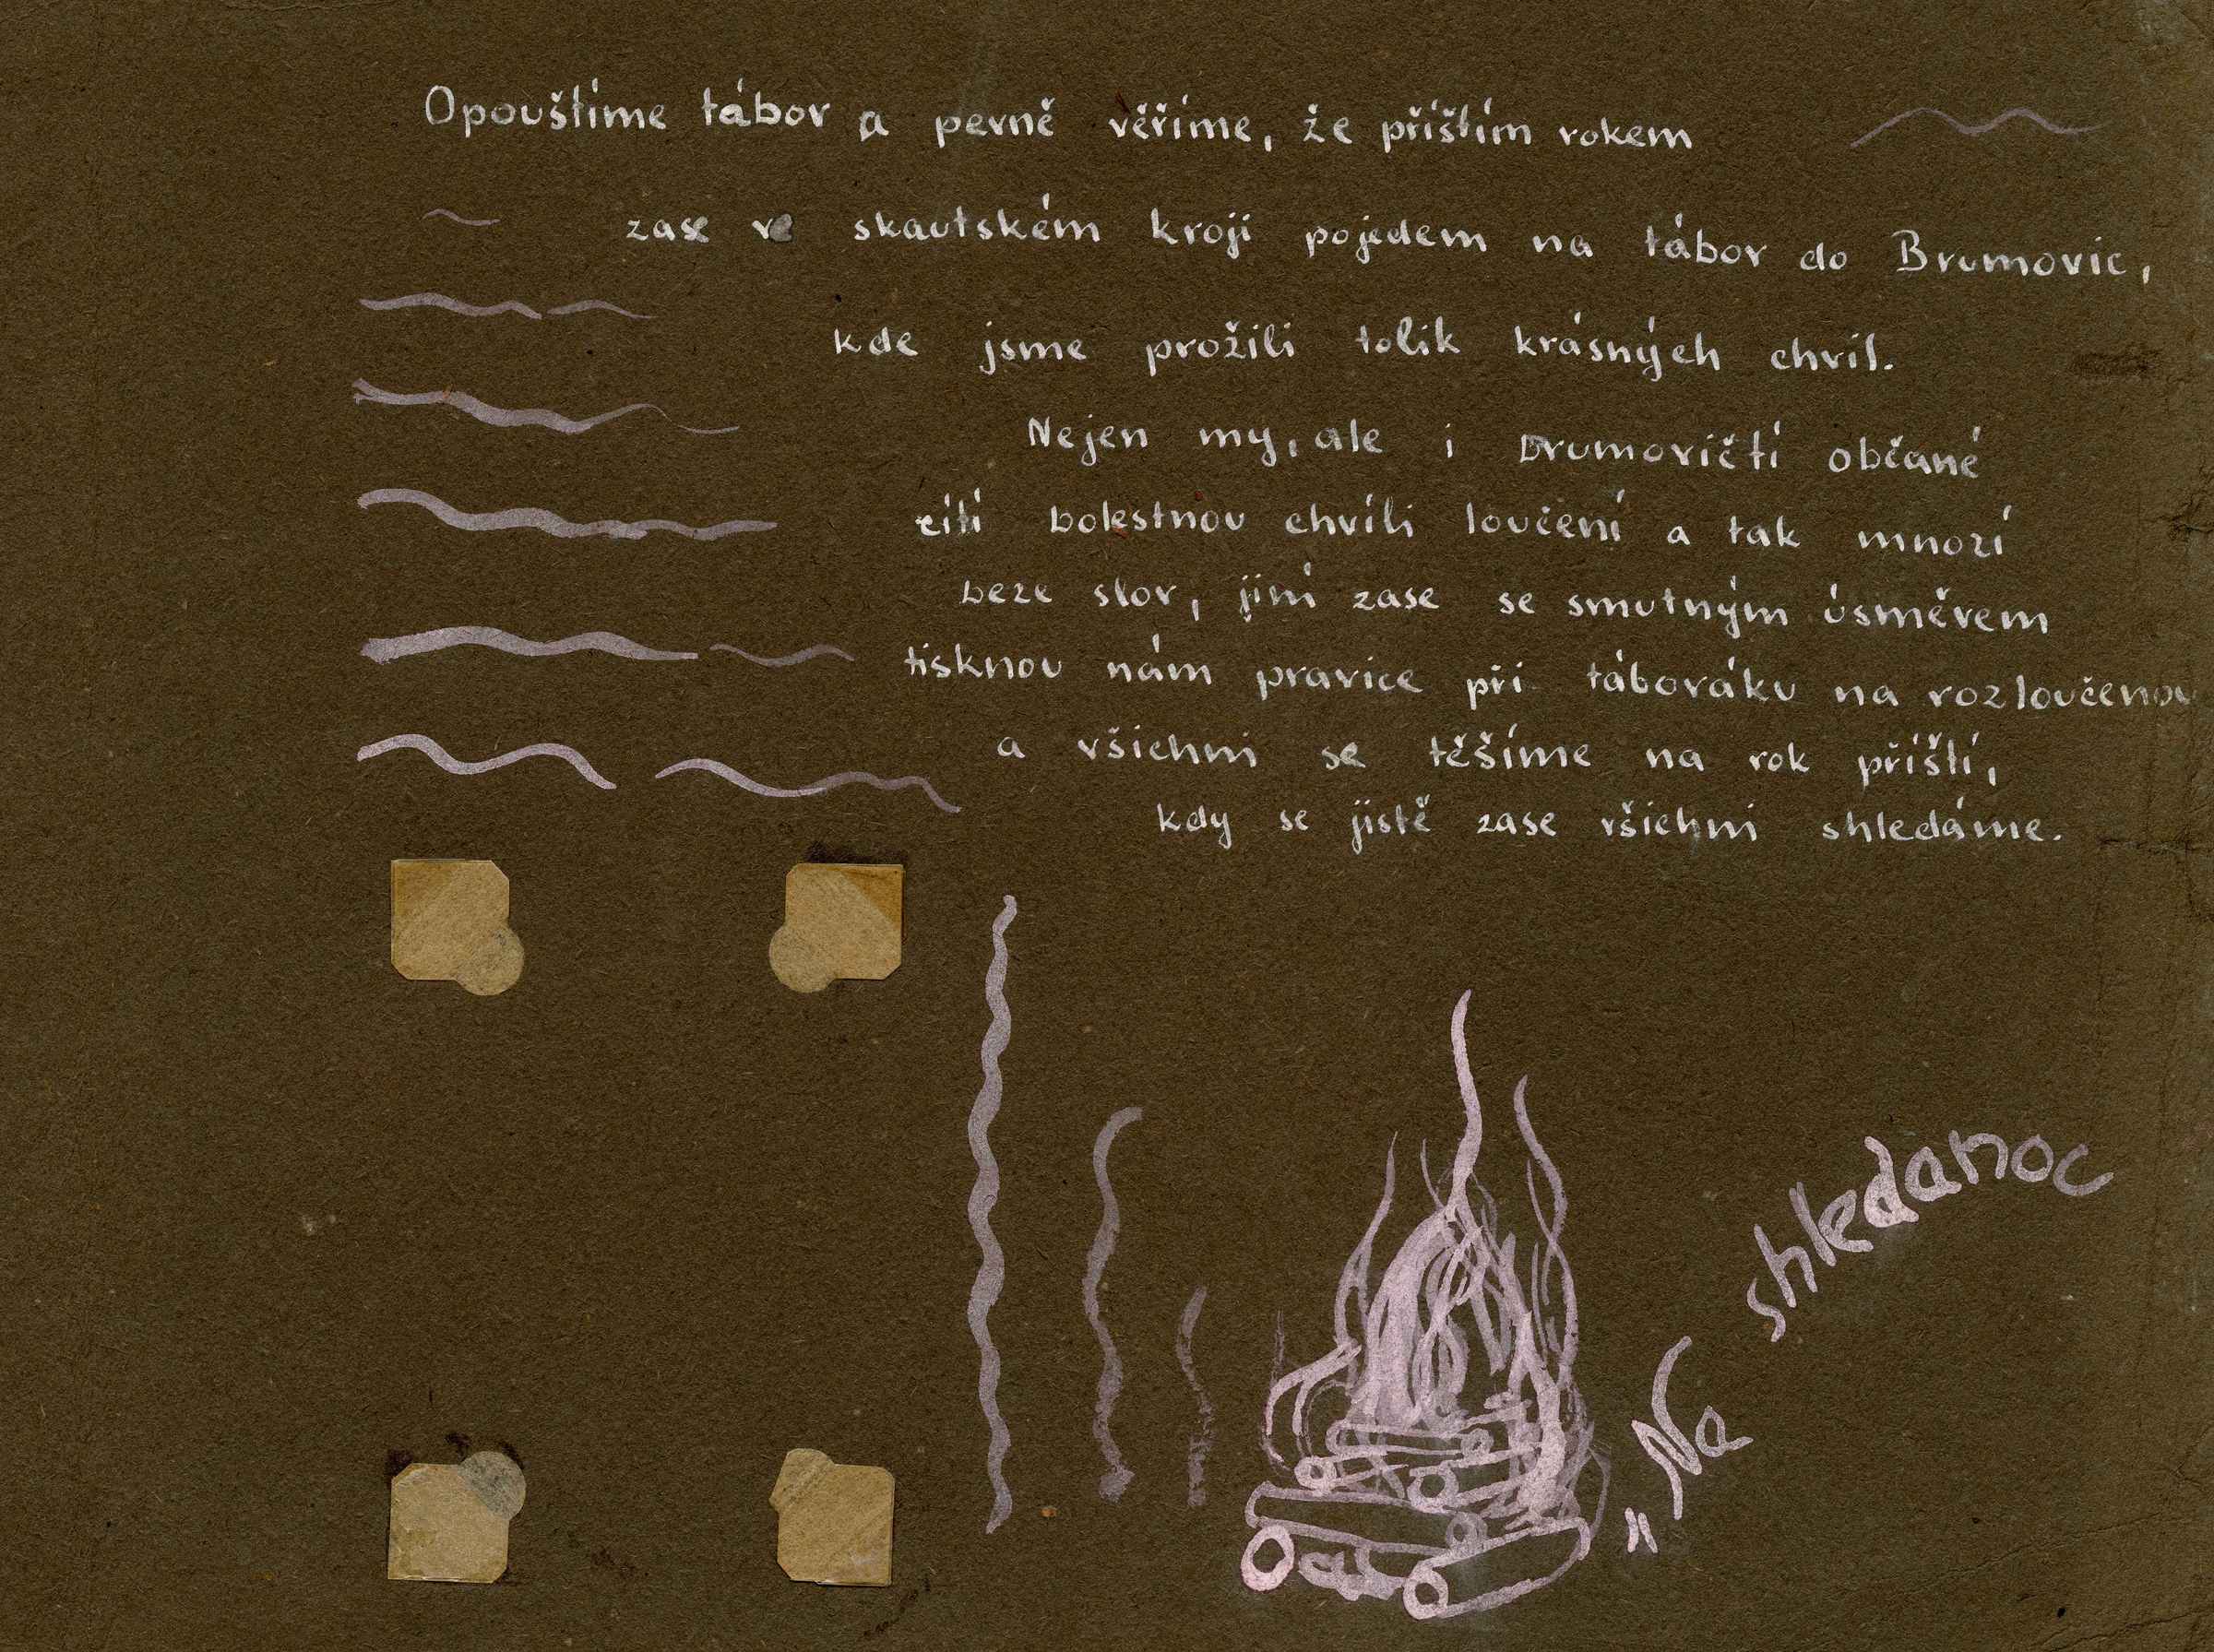 Opouštíme tábor a pevně věříme, že příštím rokem
zase ve skautském kroji pojedem na tábor do Brumovic,
kde jsme prožili tolik krásných chvil.
Nejen my, ale i Brumovičtí občané
cítí bolestnou chvíli loučení a tak mnozí
beze slov, jiní zase se smutným úsměvem
tisknou nám pravice při táboráku na rozloučenou
a všichni se těšíme na rok příští,
kdy se jistě zase všichni shledáme.
„Na shledanou